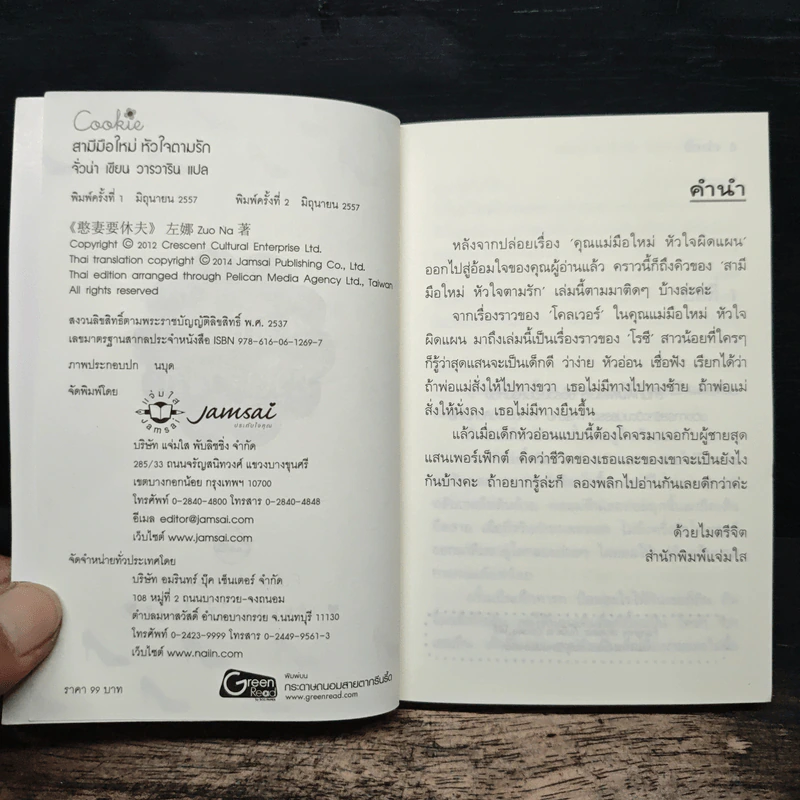 Cookie
สามีมือใหม่ หัวใจตามรัก
จั่วน่า เขียน วารวาริน แปล
พิมพ์ครั้งที่ 1 มิถุนายน 2557 พิมพ์ครั้งที่ 2 มิถุนายน 2557
《憨妻要休夫》 左娜 Zuo Na 著
Copyright © 2012 Crescent Cultural Enterprise Ltd.
Thai translation copyright © 2014 Jamsai Publishing Co., Ltd.
Thai edition arranged through Pelican Media Agency Ltd., Taiwan
All rights reserved
สงวนลิขสิทธิ์ตามพระราชบัญญัติลิขสิทธิ์ พ.ศ. 2537
เลขมาตรฐานสากลประจำหนังสือ ISBN 978-616-06-1269-7
ภาพประกอบปก นบุด
จัดพิมพ์โดย
แจ่มใส
Jamsai
Jamsai
ประทับใจคุณ
บริษัท แจ่มใส พับลิชชิ่ง จำกัด
285/33 ถนนจรัญสนิทวงศ์ แขวงบางขุนศรี
เขตบางกอกน้อย กรุงเทพฯ 10700
โทรศัพท์ 0-2840-4800 โทรสาร 0-2840-4848
อีเมล editor@jamsai.com
เว็บไซต์ www.jamsai.com
จัดจำหน่ายทั่วประเทศโดย
บริษัท อมรินทร์ บุ๊ค เซ็นเตอร์ จำกัด
108 หมู่ที่ 2 ถนนบางกรวย-จงถนอม
ตำบลมหาสวัสดิ์ อำเภอบางกรวย จ.นนทบุรี 11130
โทรศัพท์ 0-2423-9999 โทรสาร 0-2449-9561-3
เว็บไซต์ www.naiin.com
ราคา 99 บาท
Green Read
พิมพ์บน
กระดาษถนอมสายตากรีนรี้ด
www.greenread.com
คำนำ
หลังจากปล่อยเรื่อง ‘คุณแม่มือใหม่ หัวใจผิดแผน’
ออกไปสู่อ้อมใจของคุณผู้อ่านแล้ว คราวนี้ก็ถึงคิวของ ‘สามี
มือใหม่ หัวใจตามรัก’ เล่มนี้ตามมาติดๆ บ้างล่ะค่ะ
จากเรื่องราวของ ‘โคลเวอร์’ ในคุณแม่มือใหม่ หัวใจ
ผิดแผน มาถึงเล่มนี้เป็นเรื่องราวของ ‘โรซี่’ สาวน้อยที่ใครๆ
ก็รู้ว่าสุดแสนจะเป็นเด็กดี ว่าง่าย หัวอ่อน เชื่อฟัง เรียกได้ว่า
ถ้าพ่อแม่สั่งให้ไปทางขวา เธอไม่มีทางไปทางซ้าย ถ้าพ่อแม่
สั่งให้นั่งลง เธอไม่มีทางยืนขึ้น
แล้วเมื่อเด็กหัวอ่อนแบบนี้ต้องโคจรมาเจอกับผู้ชายสุด
แสนเพอร์เฟ็กต์ คิดว่าชีวิตของเธอและของเขาจะเป็นยังไง
กันบ้างคะ ถ้าอยากรู้ล่ะก็ ลองพลิกไปอ่านกันเลยดีกว่าค่ะ
ด้วยไมตรีจิต
สำนักพิมพ์แจ่มใส